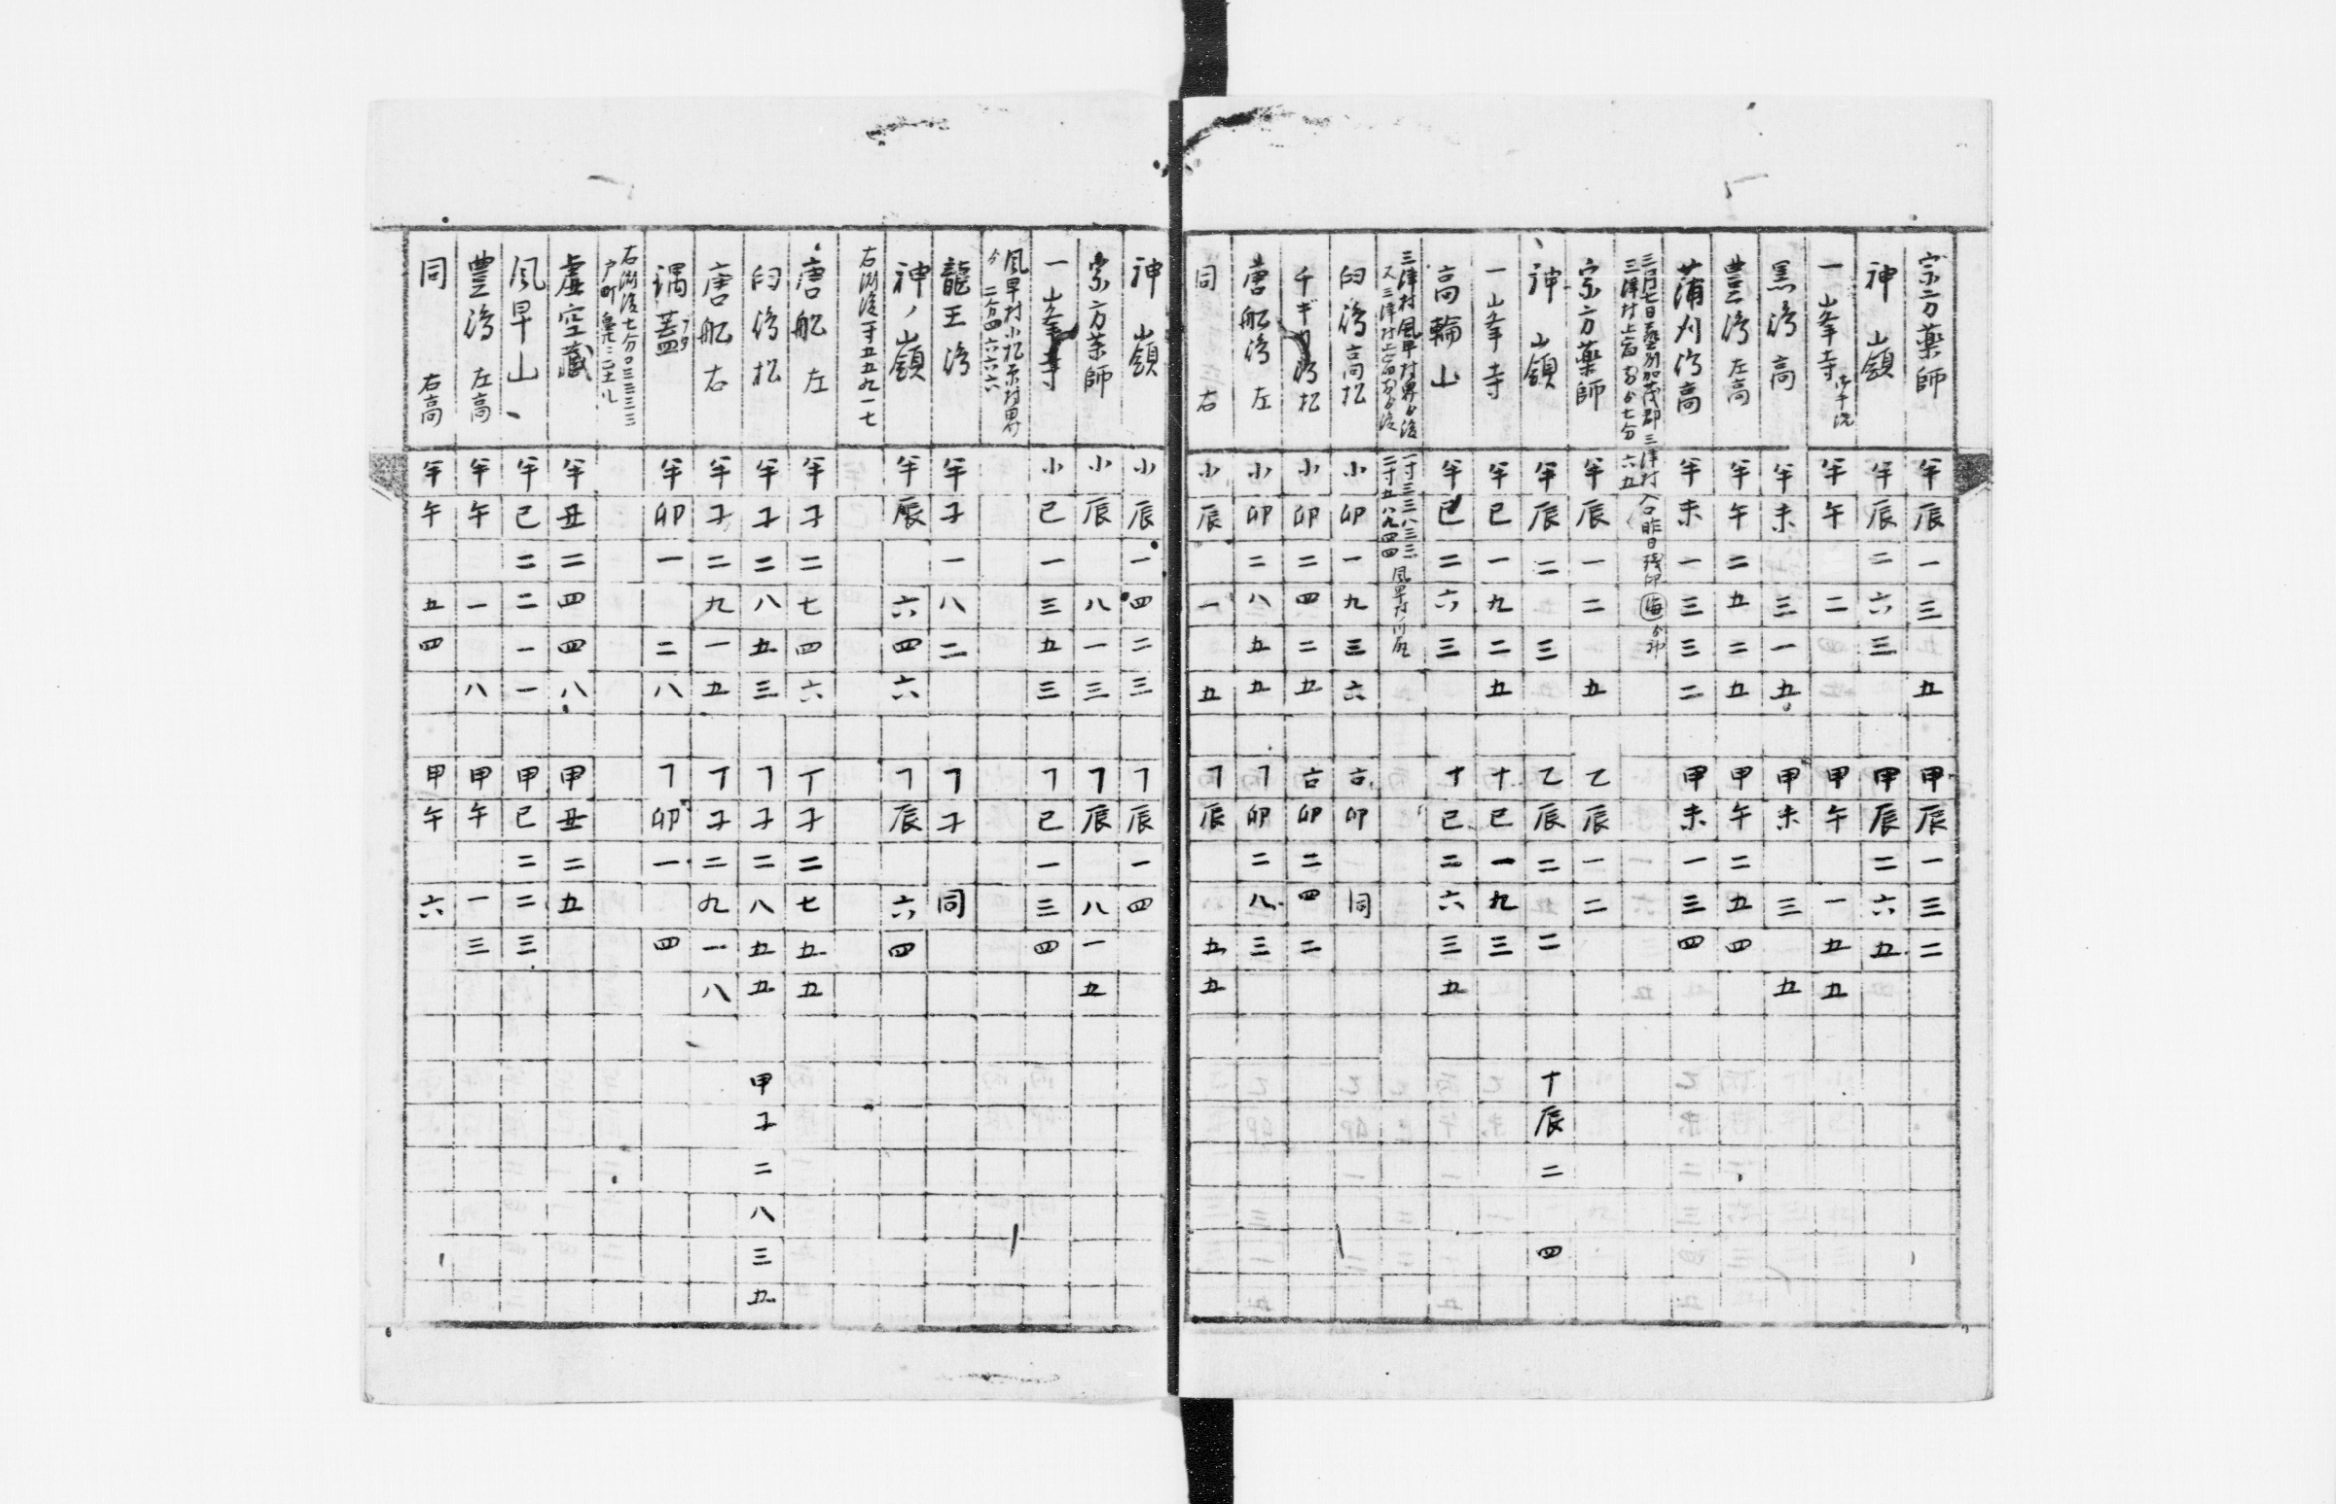 宗方薬師 半 辰 一 三 五 甲 辰 一 三 二
神山嶺 半 辰 二 六 三 甲 辰 二 六 五
一峯寺 半 午 二 甲 午 一 五 五
黒 高 半 未 三 一 五 甲 未 三 五
豊 左高 半 午 二 五 二 五 甲 午 二 五 四
蒲刈 高 半 未 一 三 三 二 甲 未 一 三 四
三月七日 加茂郡三津村
三津村 七分六五
宗方薬師 半 辰 一 二 五 乙 辰 一 二
神山嶺 半 辰 二 三 乙 辰 二 二 十 辰 二 四
一峯寺 半 巳 一 九 二 五 十 巳 一 九 三
高輪山 半 巳 二 六 三 十 巳 二 六 三 五
三津村風早村界 一寸三三八三三
又三津村 二寸五八九四四 風早村川尻
高松 小 卯 一 九 三 六 卯 同
千ギ 松 小 卯 二 四 二 五 卯 二 四 二
唐舩 左 小 卯 二 八 五 五 丁 卯 二 八 三
同 右 小 辰 一 五 丁 辰 五 五
神山嶺 小 辰 一 四 二 三 丁 辰 一 四
宗方薬師 小 辰 八 一 三 丁 辰 八 一 五
一峯寺 小 巳 一 三 五 三 丁 巳 一 三 四
風早村小松原村界
二分四六六六
龍王 半 子 一 八 二 丁 子 同
神ノ山嶺 半 辰 六 四 六 丁 辰 六 四
右 一寸五五九一七
唐舩 左 半 子 二 七 四 六 丁 子 二 七 五 五
松 半 子 二 八 五 三 丁 子 二 八 五 五 甲 子 二 八 三 五
唐舩 右 半 子 二 九 一 五 丁 子 二 九 一 八
蓋 半 卯 一 二 八 丁 卯 一 四
右 七分 三三三三
戸町
虚空蔵 半 丑 二 四 四 八 甲 丑 二 五
風早山 半 巳 二 二 一 一 甲 巳 二 二 三
豊 左高 半 午 一 八 甲 午 一 三
同 右高 半 午 五 四 甲 午 六